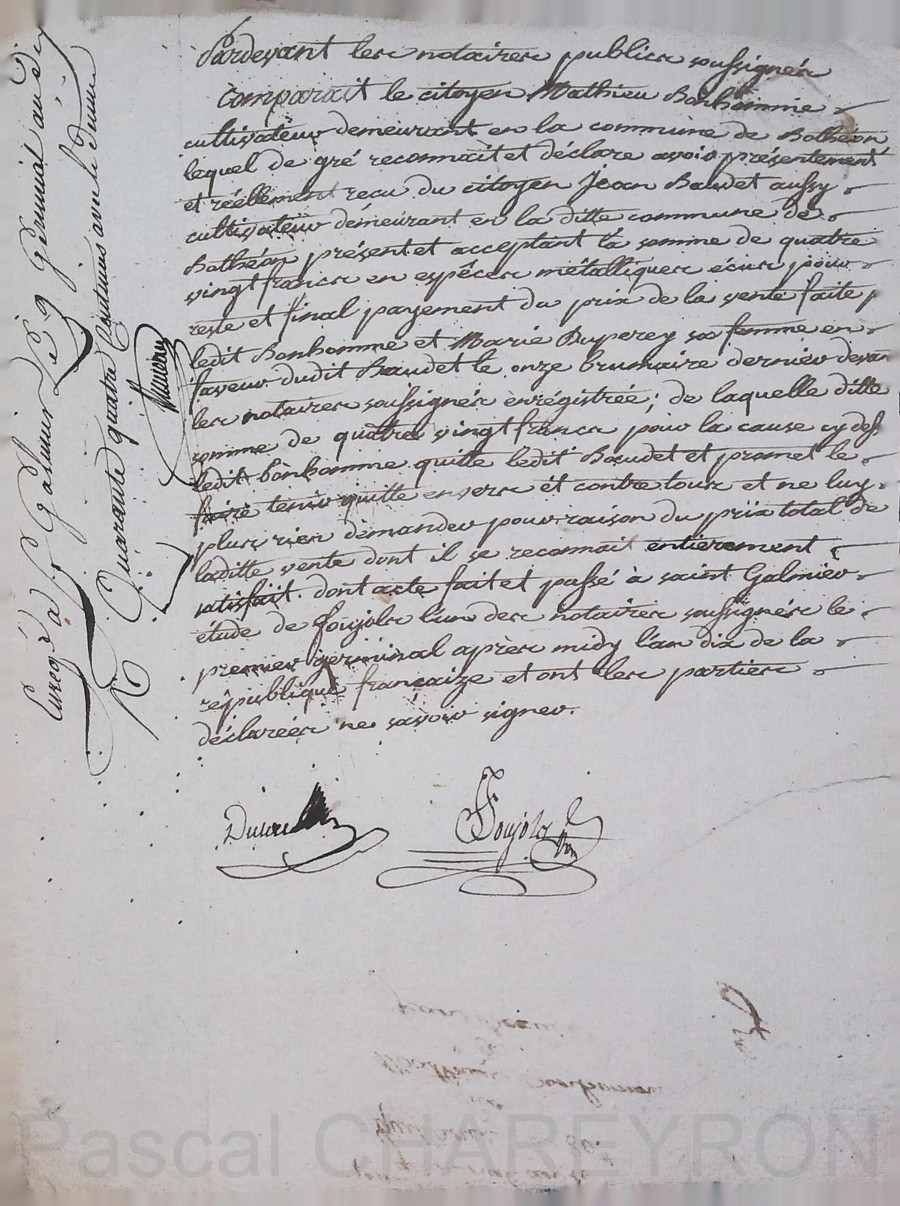 Pardevant les notaires publics soussignés
comparait le citoyen Mathieu Bonhomme
cultivateur demeurant en la commune de Bothéon
lequel de gré reconnait et déclare avoir présentement
et réellement recu du citoyen Jean Baudet aussy
cultivateur demeurant en la ditte commune de
Bothéon présent et acceptant la somme de quatre
vingt francs en espéces métalliques écus pour
reste et final payement du prix de la vente faite p
ledit Bonhomme et Marie Duperey sa femme en
faveur dudit Baudet le onze brumaire dernier devan
les notaires soussignés enrégistrée; de laquelle ditte
somme de quatre vingt francs pour la cause cy des
ledit bonhomme quitte ledit Baudet et promet le
faire tenir quitte envers et contre tous et ne luy
plus rien demander pour raison du prix total de
laditte vente dont il se reconnait entierement
satisfait. dont acte fait et passé à saint Galmier
étude de Foujols l'un des notaires soussignés le
premier germinal après midy l'an dix de la
république françaize et ont les parties
déclarées ne savoir signer.
Foujols
Enregé à St Galmier Le 9 Germinal an dix
R Quarante quatre Centimes avec le dixme
Pascal CHAREYRON